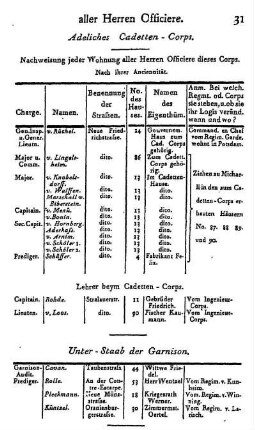 aller Herren Officiere. 31
Adeliches Cadetten-Corps.
Nachweisung jeder Wohnung aller Herren Officiere dieses Corps.
Nach ihrer Anciennität.
Charge. Namen. Benennung der Straßen. No. des Hauses. Namen des Eigenthüm. Anm. Bei welch. Regmt. od. Corps sie stehen, u. ob sie ihr Logis veränd. wann und wo?
Gen. Insp. u. Gener. Lieuten. v. Rüchel. Neue Friedrichstraße. 14 Gouvernem. Haus zum Cad. Corps gehörig. Command. en Chef vom Regim. Garde. wohnt in Potsdam.
Major u. Comm. v. Lingelsheim. dito. 86 Zum Cadett. Corps gehörig.
Major. v. Knobelsdorff. dito. 13 Im Cadetten-Hause.
v. Wulffen. dito. 13 dito.
Marschall v. Biberstein. dito. 13 dito.
Capitain. v. Menk. dito. 13 dito.
v. dito. 13 dito.
Sec. Capit. v. Hornberg. dito. 13 dito.
Aderkaß. dito. 13 dito.
v. Arnim. dito. 13 dito.
v. Schöler 1. dito. 13 dito.
v. Schöler 2. dito. 13 dito.
Prediger. Schäffer. dito. 4 Fabrikant Felix.
Ziehen zu Michaeli in den zum Cadetten-Corps erbauten Häusern No. 87. 88 89. und 90.
Lehrer beym Cadetten-Corps.
Capitain. Rohde. Stralauerstr. 11 Gebrüder Friedrich. Vom Ingenieur-Corps.
Lieuten. v. Loos. dito. 50 Fischer Kaumann. Vom Ingenieur-Corps.
Unter-Staab der Garnison.
Garnison-Audit. Cavan. Taubenstraß 44 Wittwe Friedel.
Prediger. Rolle. An der Contre-Escarpe. 53 Herr Wentzel Vom Regim. v. Kunheim.
Pleckmann. Neue Münzstraße. 18 Kriegesrath Werner. Vom Regim. v. Winning.
Küntzel. Oranienburgerstraße. 50 Zimmermst. Oertel. Vom Regim. v. Larisch.